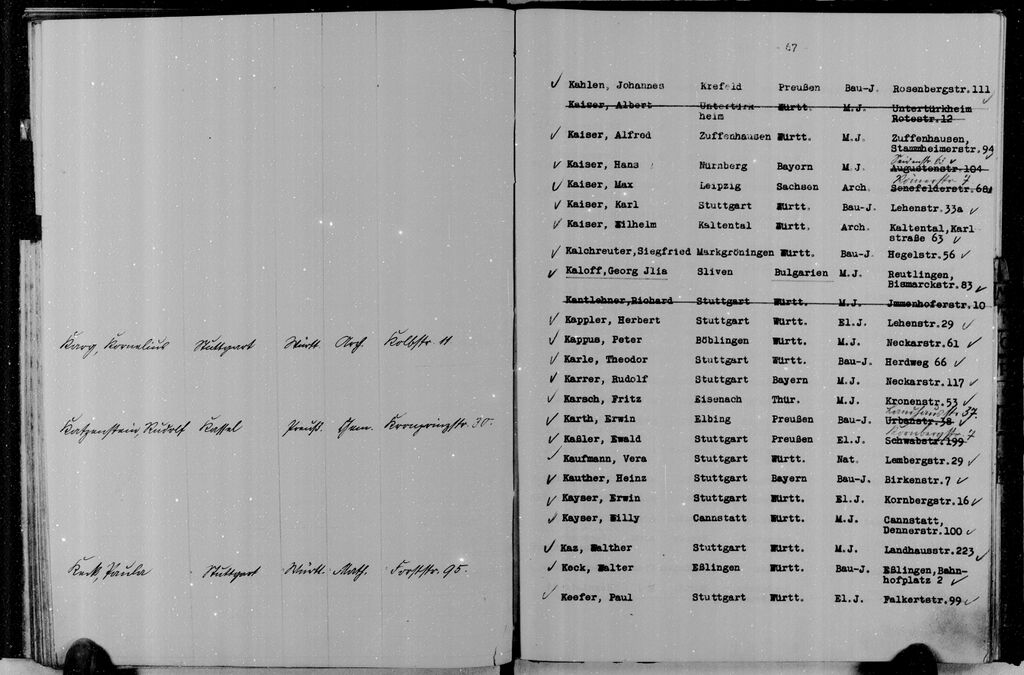 Karg, Kornelius Stuttgart Württ Arch Kolbstr. 11
Katzenstein, Rudolf Kassel Preuß. Chem. Kronprinzstr. 30.
Paula Stuttgart Württ. Math. Forststr. 95.
- 67 -
✓ Kahlen, Johannes Krefeld Preußen Bau-J. Rosenbergstr.111 ✓
Kaiser, Albert Untertürk- Württ. M.J. Untertürkheim
heim Rotestr.12
✓ Kaiser, Alfred Zuffenhausen Württ. M.J. Zuffenhausen,
Stammheimerstr.94
Seidenstr. 63 ✓
✓ Kaiser, Hans Nürnberg Bayern M.J. Augustenstr.104
Römerstr. 7
✓ Kaiser, Max Leipzig Sachsen Arch. Senefelderstr.68
✓ Kaiser, Karl Stuttgart Württ. Bau-J. Lehenstr.33a ✓
✓ Kaiser, Wilhelm Kaltental Württ. Arch. Kaltental,Karl
straße 63 ✓
✓ Kalchreuter,Siegfried Markgröningen Württ. Bau-J. Hegelstr.56 ✓
✓ Kaloff,Georg Jlia Sliven Bulgarien M.J. Reutlingen,
Bismarckstr.83 ✓
Kantlehner,Richard Stuttgart Württ. M.J. Jmmenhoferstr.10
✓ Kappler, Herbert Stuttgart Württ. El.J. Lehenstr.29 ✓
✓ Kappus, Peter Böblingen Württ. M.J. Neckarstr.61 ✓
✓ Karle, Theodor Stuttgart Württ. Bau-J. Herdweg 66 ✓
✓ Karrer, Rudolf Stuttgart Bayern M.J. Neckarstr.117 ✓
✓ Karsch, Fritz Eisenach Thür. M.J. Kronenstr.53 ✓
Landhausstr 37.
✓ Karth, Erwin Elbing Preußen Bau-J. Urbanstr.38 ✓
Kornbergstr. 7
✓ Kaßler, Ewald Stuttgart Preußen El.J. Schwabstr.199
✓ Kaufmann, Vera Stuttgart Württ. Nat. Lembergstr.29 ✓
✓ Kauther, Heinz Stuttgart Bayern Bau-J. Birkenstr.7 ✓
✓ Kayser, Erwin Stuttgart Württ. El.J. Kornbergstr.16 ✓
✓ Kayser, Willy Cannstatt Württ. M.J. Cannstatt,
Dennerstr.100 ✓
✓ Kaz, Walther Stuttgart Württ. M.J. Landhausstr.223 ✓
✓ Keck, Walter Eßlingen Württ. Bau-J. Eßlingen,Bahn-
hofplatz 2 ✓
✓ Keefer, Paul Stuttgart Württ. El.J. Falkertstr.99 ✓